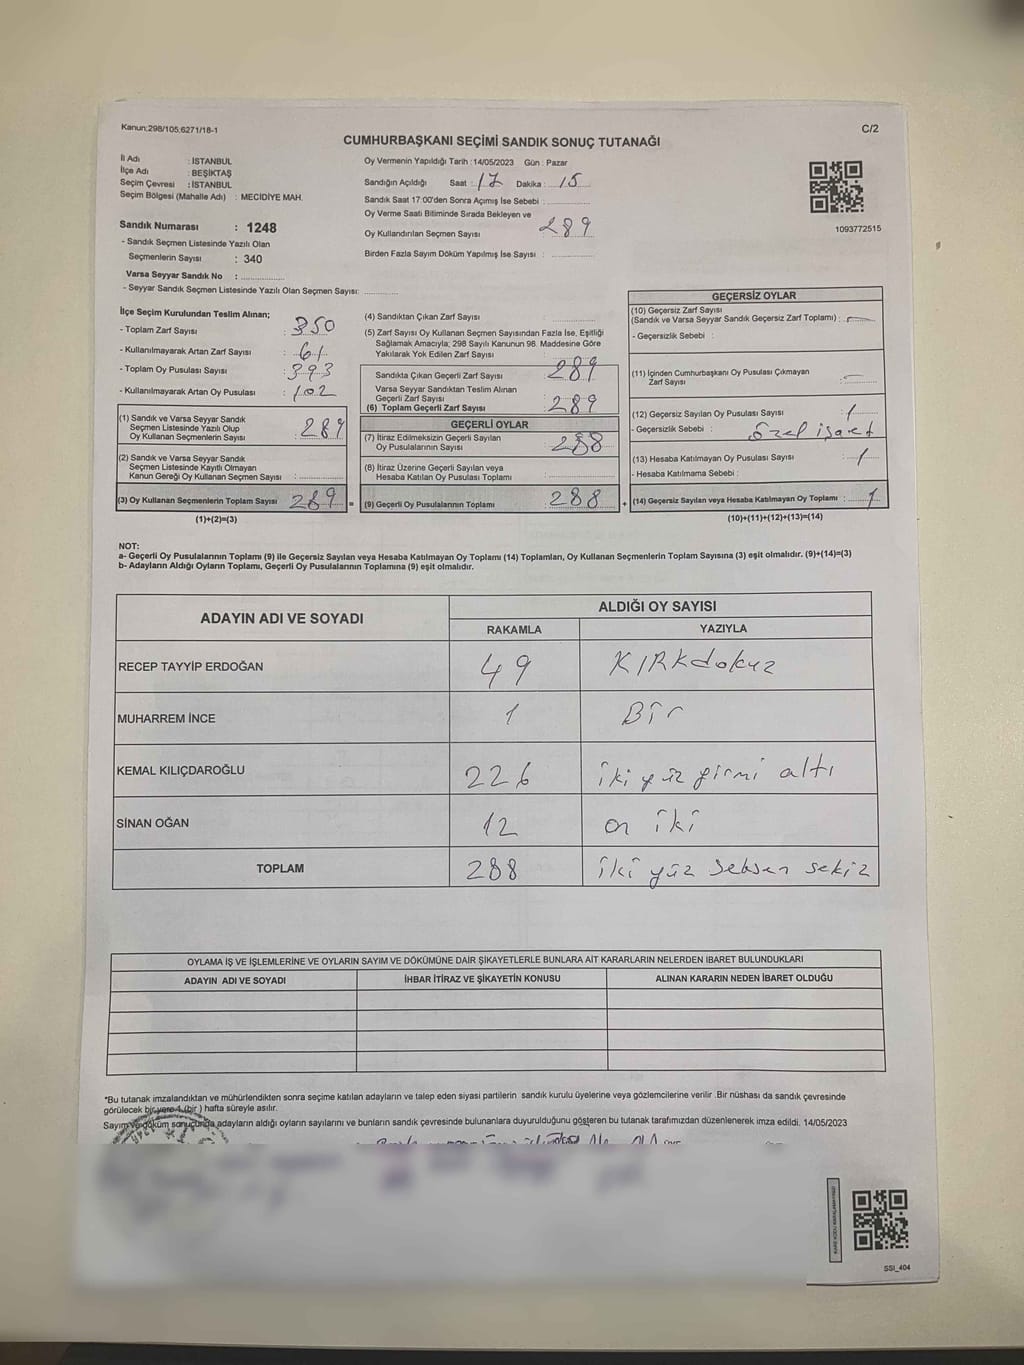 Kanun:298/105,6271/18-1
C/2
CUMHURBAŞKANI SEÇİMİ SANDIK SONUÇ TUTANAĞI
İl Adı : İSTANBUL
İlçe Adı : BEŞİKTAŞ
Seçim Çevresi : İSTANBUL
Seçim Bölgesi (Mahalle Adı) : MECIDİYE MAH.
Sandık Numarası : 1248
- Sandık Seçmen Listesinde Yazılı Olan
Seçmenlerin Sayısı : 340
Varsa Seyyar Sandık No :
- Seyyar Sandık Seçmen Listesinde Yazılı Olan Seçmen Sayısı:
Oy Vermenin Yapıldığı Tarih : 14/05/2023 Gün : Pazar
Sandığın Açıldığı Saat : 17 Dakika : 15
Sandık Saat 17:00'den Sonra Açımış İse Sebebi :
Oy Verme Saati Bitiminde Sırada Bekleyen ve
Oy Kullandırılan Seçmen Sayısı 289
Birden Fazla Sayım Döküm Yapılmış İse Sayısı :
1093772515
İlçe Seçim Kurulundan Teslim Alınan;
- Toplam Zarf Sayısı : 350
- Kullanılmayarak Artan Zarf Sayısı : 61
- Toplam Oy Pusulası Sayısı : 393
- Kullanılmayarak Artan Oy Pusulası : 102
(1) Sandık ve Varsa Seyyar Sandık
Seçmen Listesinde Yazılı Olup
Oy Kullanan Seçmenlerin Sayısı : 289
(2) Sandık ve Varsa Seyyar Sandık
Seçmen Listesinde Kayıtlı Olmayan
Kanun Gereği Oy Kullanan Seçmen Sayısı :
(3) Oy Kullanan Seçmenlerin Toplam Sayısı 289
(1)+(2)=(3)
=
(4) Sandıktan Çıkan Zarf Sayısı
(5) Zarf Sayısı Oy Kullanan Seçmen Sayısından Fazla İse, Eşitliği
Sağlamak Amacıyla; 298 Sayılı Kanunun 98. Maddesine Göre
Yakılarak Yok Edilen Zarf Sayısı
Sandıkta Çıkan Geçerli Zarf Sayısı : 289
Varsa Seyyar Sandıktan Teslim Alınan
Geçerli Zarf Sayısı
(6) Toplam Geçerli Zarf Sayısı : 289
GEÇERLİ OYLAR
(7) İtiraz Edilmeksizin Geçerli Sayılan
Oy Pusulasının Sayısı : 288
(8) İtiraz Üzerine Geçerli Sayılan veya
Hesaba Katılan Oy Pusulası Toplamı
(9) Geçerli Oy Pusulalarının Toplamı : 288
+
GEÇERSİZ OYLAR
(10) Geçersiz Zarf Sayısı
(Sandık ve Varsa Seyyar Sandık Geçersiz Zarf Toplamı) : —
- Geçersizlik Sebebi :
(11) İçinden Cumhurbaşkanı Oy Pusulası Çıkmayan
Zarf Sayısı : —
(12) Geçersiz Sayılan Oy Pusulası Sayısı : 1
- Geçersizlik Sebebi : özel işaret
(13) Hesaba Katılmayan Oy Pusulası Sayısı : 1
- Hesaba Katılmama Sebebi :
(14) Geçersiz Sayılan veya Hesaba Katılmayan Oy Toplamı : 1
(10)+(11)+(12)+(13)=(14)
NOT:
a- Geçerli Oy Pusulalarının Toplamı (9) ile Geçersiz Sayılan veya Hesaba Katılmayan Oy Toplamı (14) Toplamları, Oy Kullanan Seçmenlerin Toplam Sayısına (3) eşit olmalıdır. (9)+(14)=(3)
b- Adayların Aldığı Oyların Toplamı, Geçerli Oy Pusulalarının Toplamına (9) eşit olmalıdır.
ADAYIN ADI VE SOYADI
ALDIĞI OY SAYISI
RAKAMLA YAZIYLA
RECEP TAYYİP ERDOĞAN 49 KIRKdokuz
MUHARREM İNCE 1 Bir
KEMAL KILIÇDAROĞLU 226 iki yüz yirmi altı
SİNAN OĞAN 12 on iki
TOPLAM 288 iki yüz seksen sekiz
OYLAMA İŞ VE İŞLEMLERİNE VE OYLARIN SAYIM VE DÖKÜMÜNE DAİR ŞİKAYETLERLE BUNLARA AİT KARARLARIN NELERDEN İBARET BULUNDUKLARI
ADAYIN ADI VE SOYADI İHBAR İTİRAZ VE ŞİKAYETİN KONUSU ALINAN KARARIN NEDEN İBARET OLDUĞU
*Bu tutanak imzalandıktan ve mühürlendikten sonra seçime katılan adayların ve talep eden siyasi partilerin sandık kurulu üyelerine veya gözlemcilerine verilir .Bir nüshası da sandık çevresinde
görülecek bir yere 1 (bir ) hafta süreyle asılır.
Sayım ve döküm sonucunda adayların aldığı oyların sayılarını ve bunların sandık çevresinde bulunanlara duyurulduğunu gösteren bu tutanak tarafımızdan düzenlenerek imza edildi. 14/05/2023
SSI_404